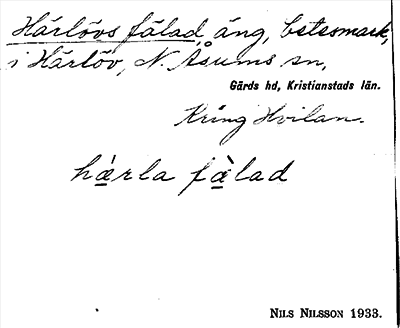 Härlövs fälad äng, betesmark,
i Härlöv, N. Åsums sn,
Gärds hd, Kristianstads län.
Kring Hvilan.
hæ̀rla fæ̀lad
Nils Nilsson 1933.